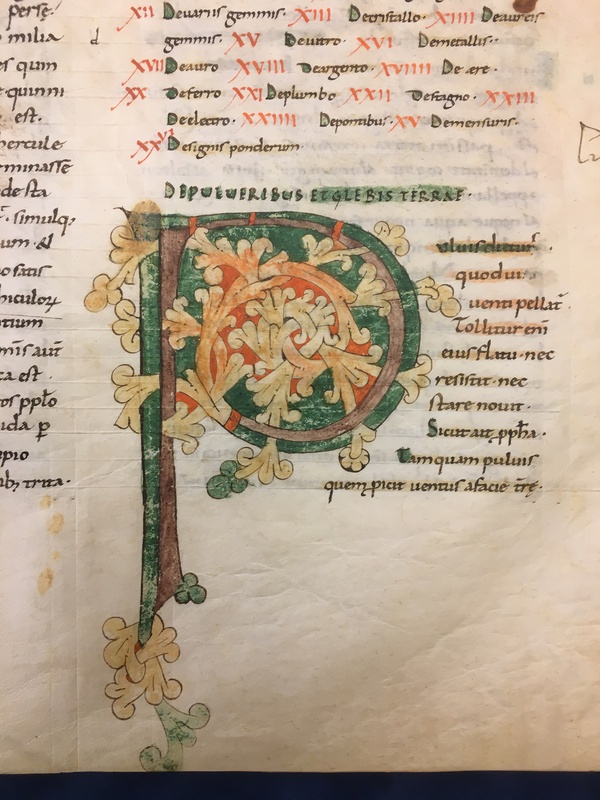 perse·
o milia
es qum
e quinni
· est·
hercule
rminasse
de sta
· simulq;
um · al
positis
hiculoꝝ
tium
mīs aut
ca est ·
os pplo
ida ꝑ
epio
ibꝫ trita·
d
XII Deuariis gemmis· XIII Decristallo· XIIII Deaureis
gemmis· XV Deuitro· XVI Demetallis·
XVII Deauro XVIII Deargento· XVIIII De ere·
XX Deferro XXI Deplumbo XXII Destagno· XXIII
Deelectro· XXIIII Deponderibus· XXV Demensuris·
XXVI Designis ponderum·
DEPULUERIBUS ET GLEBIS TERRAE·
Puluis dicitur
quod ui
uenti pellat̄·
Tollitur eni
eius flatu · nec
resistit · nec
stare nouit ·
Sicut ait ꝓpħa ·
Tamquam puluis
quem ꝓicit uentus afacie t̄re·